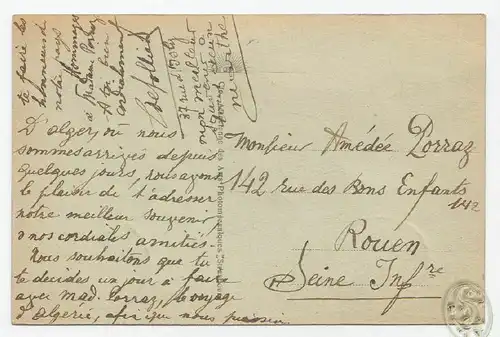 D'alger, où nous
sommes arrivés depuis
quelques jours, nous avons
le plaisir de t'adresser
notre meilleur souvenir
& nos cordiales amitiés.
Nous souhaitons que tu
te décides un jour à faire
avec Mad. Porraz, le voyage
d'Algérie, afin que nous puissions
te faire les
honneurs de
notre pays
Hommages
à Madame Porraz
& toi bien
cordialement
37 rue d'Isly
mon meilleur
Monsieur Amédée Porraz
142 rue des Bons Enfants
142
Rouen
Seine Infre